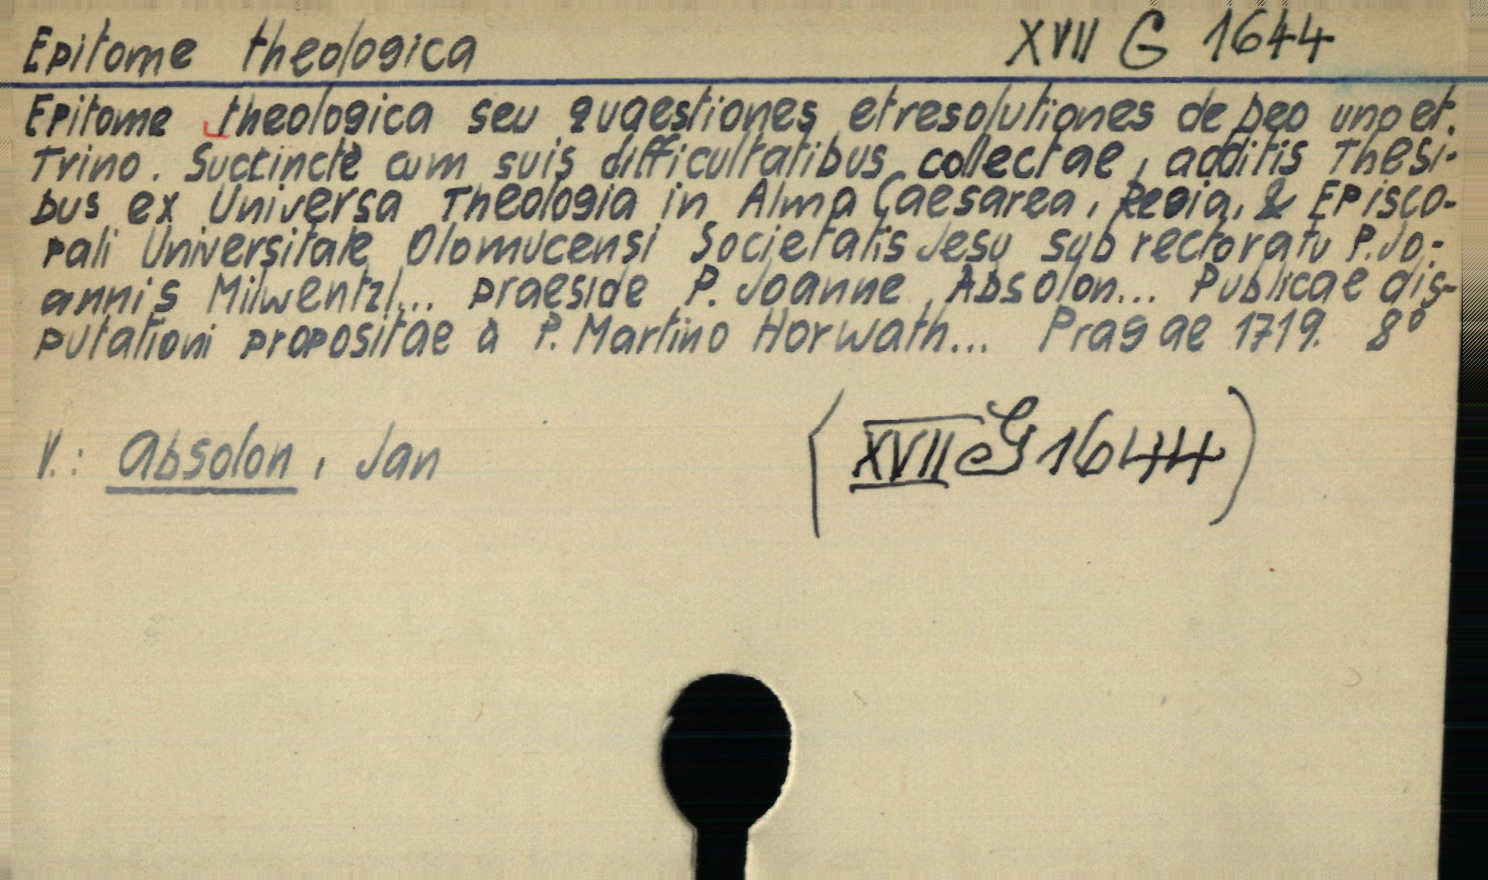 Epitome theologica XVII G 1644
Epitome theologica seu quaestiones et resolutiones de Deo uno et.
Trino. Succinctè cum suis difficultatibus collectae, additis Thesi-
bus ex Universa Theologia in Alma Caesarea, Regia, & Episco-
pali Universitate Olomucensi Societatis Jesu sub rectoratu P. Jo-
annis Milwentzl... praeside P. Joanne Absolon... Publicae dis-
putationi propositae à P. Martino Horwath... Pragae 1719. 8°
V.: Absolon, Jan
(XVII G 1644)